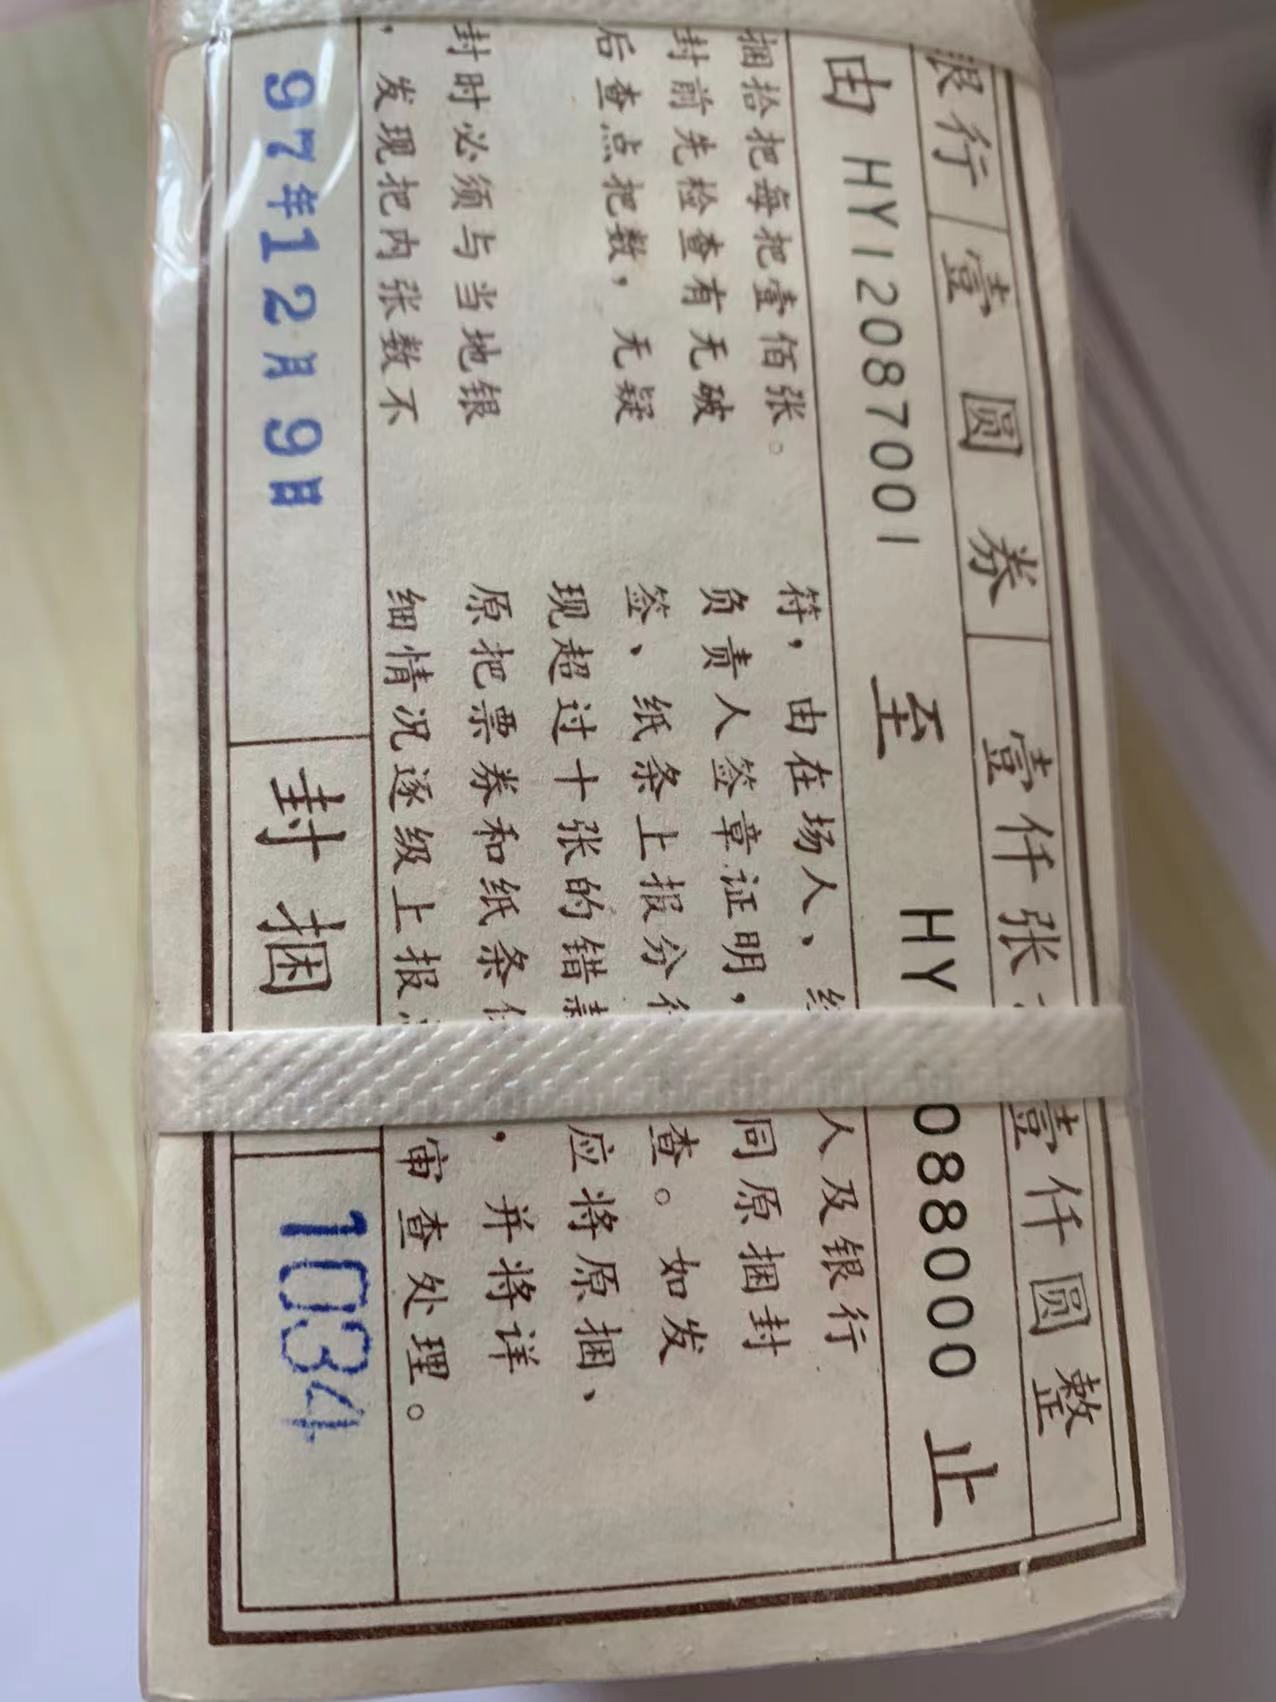 银行 壹圆券 壹仟张 壹仟圆整
由 HY12087001 至 HY 088000 止
捆拾把每把壹佰张。
封前先检查有无破
后查点把数，无疑
封时必须与当地银
，发现把内张数不
符，由在场人、 人及银行
负责人签章证明， 同原捆封
签、纸条上报分行 查。如发
现超过十张的错 应将原捆、
原把票券和纸条 ，并将详
细情况逐级上报 审查处理。
97年12月9日 封捆 1034